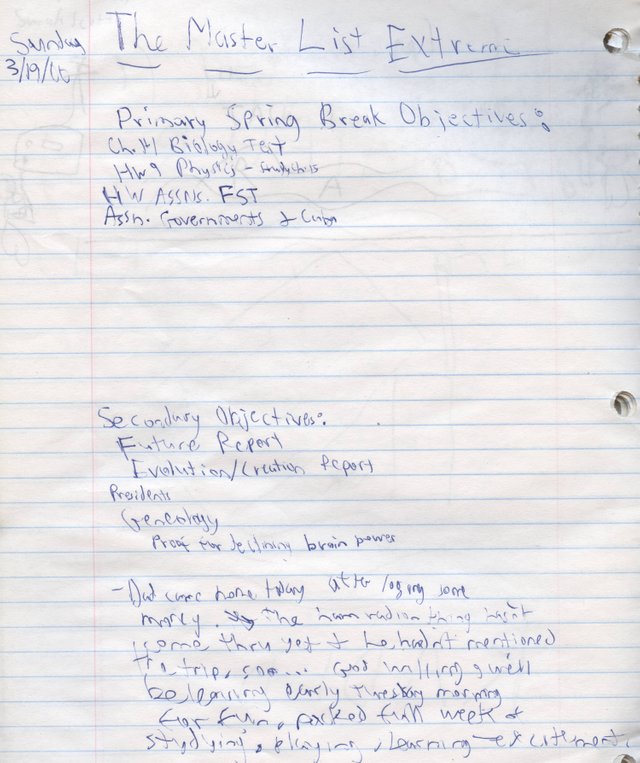 Sunday
3/19/00
The Master List Extreme
Primary Spring Break Objectives:
Ch. 41 Biology Test
HW9 Physics - Study Ch. 15
HW Assns. FST
Assn. Governments & Cuba
Secondary Objectives:
Future Report
Evolution/Creation Report
Presidents
Geneology
Proof for declining brain power
- Dad came home today after some
money. The thing hasn't
come thru yet & he hadn't mentioned
the trip, soo... God willing, we'll
be leaving early Tuesday morning
for fun, packed full week of
studying, playing, learning excitement.